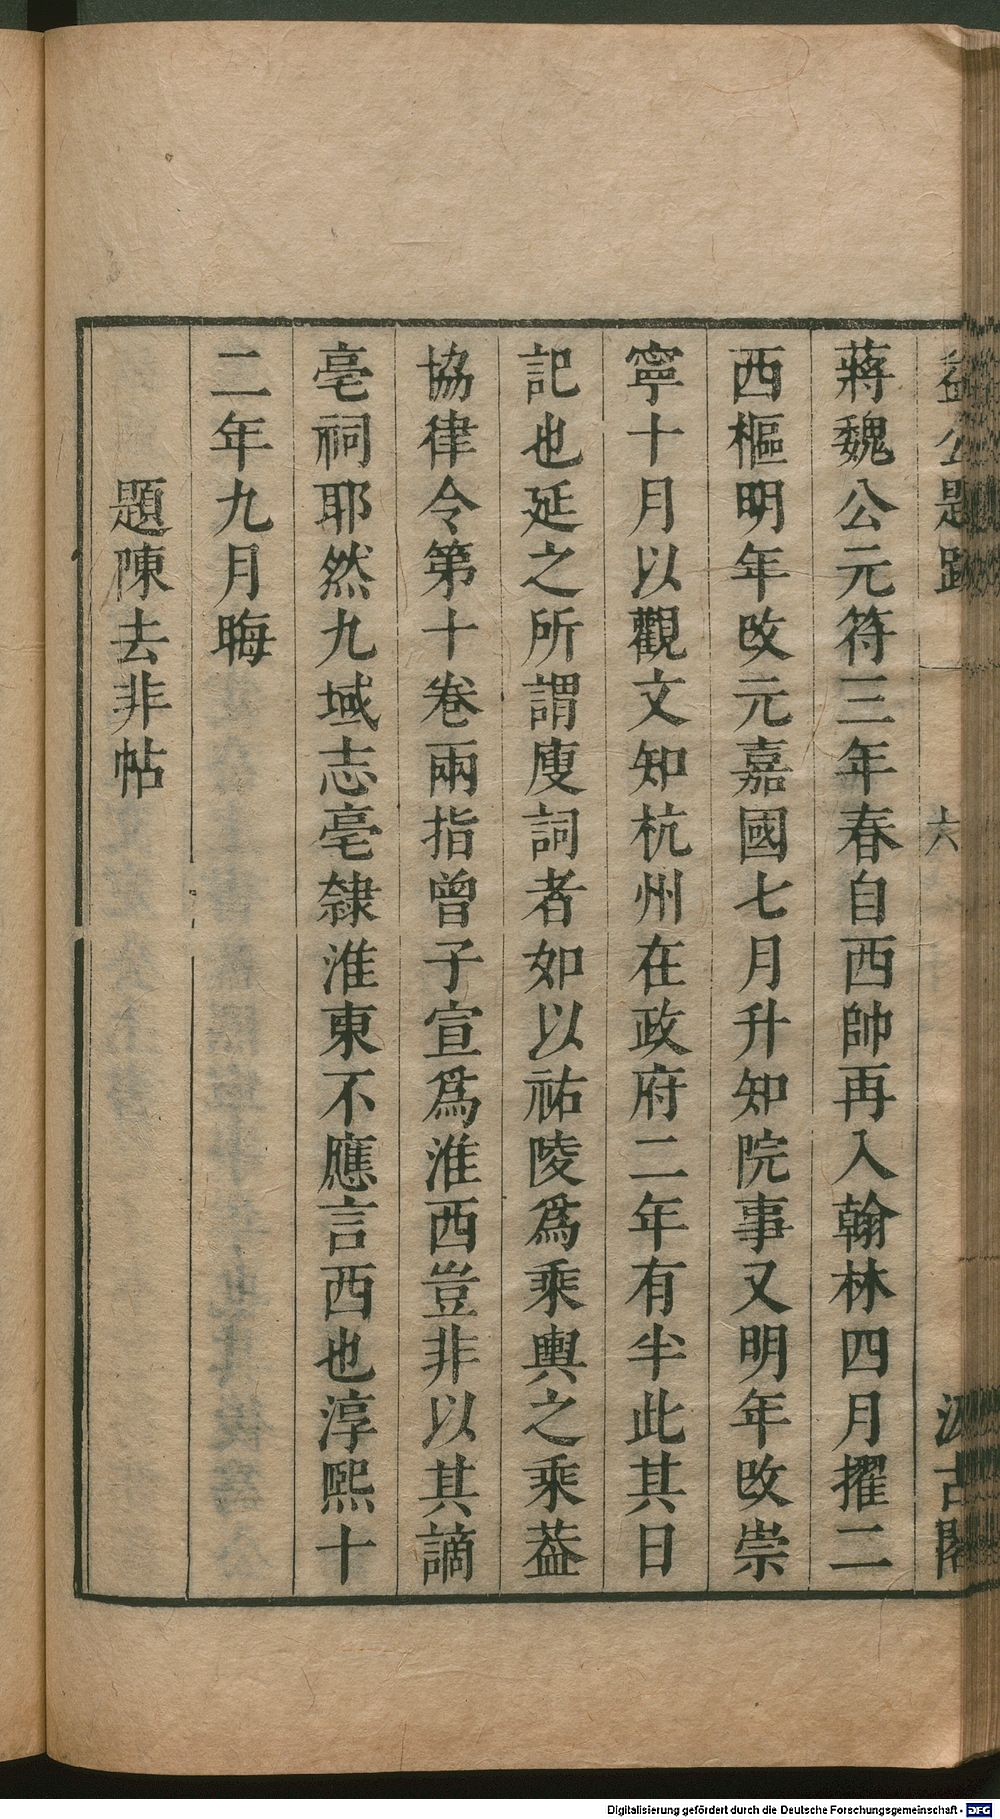 益公題跋 六 汲古閣
蔣魏公元符三年春自西帥再入翰林四月擢二
西樞明年改元嘉國七月升知院事又明年改崇
寧十月以觀文知杭州在政府二年有半此其日
記也延之所謂廋詞者如以祐陵爲乘輿之乘葢
協律令第十卷兩指曾子宣爲淮西豈非以其謫
亳祠耶然九域志亳隸淮東不應言西也淳熙十
二年九月晦
題陳去非帖
Digitalisierung gefördert durch die Deutsche Forschungsgemeinschaft - DFG